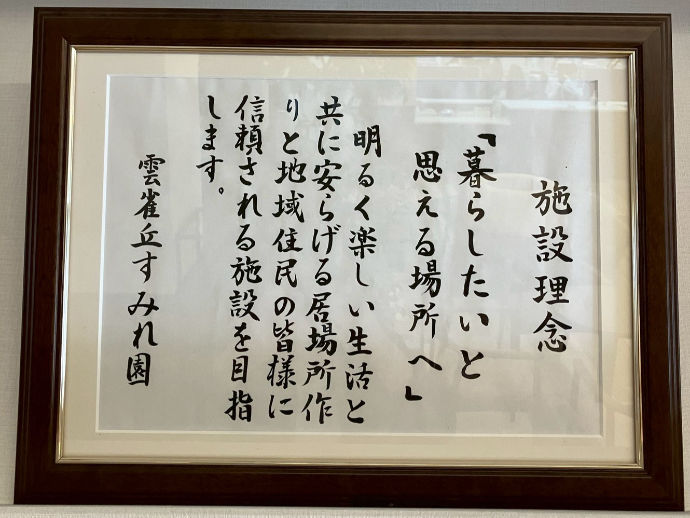 施設理念
「暮らしたいと
思える場所へ」
明るく楽しい生活と
共に安らげる居場所作
りと地域住民の皆様に
信頼される施設を目指
します。
雲雀丘すみれ園